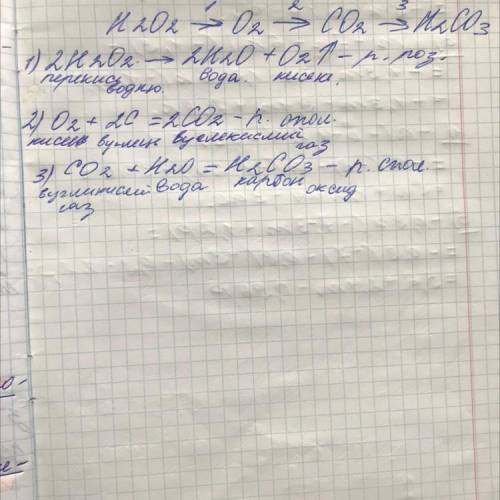 1 2 3
H2O2 → O2 → CO2 → H2CO3
1) 2H2O2 → 2H2O + O2↑ - р. роз.
перекись вода. кисень
водню.
2) O2 + 2C = 2CO2 - р. спол.
кисень вуглець вуглекислий
газ
3) CO2 + H2O = H2CO3 - р. спол.
вуглекислий вода карбон
газ оксид